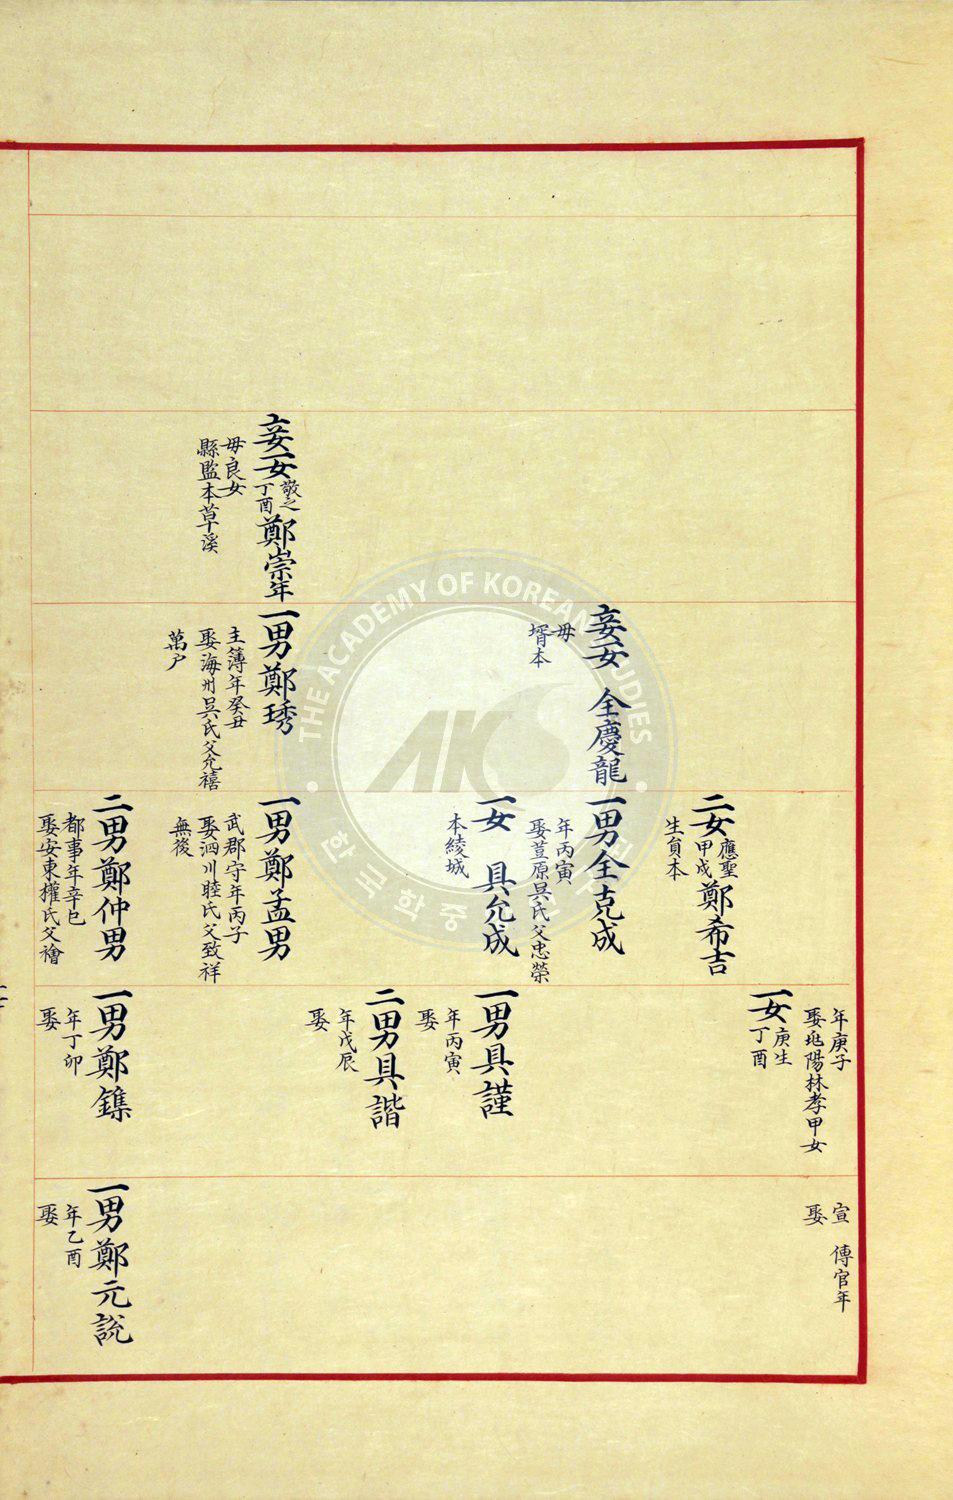 妾女 敬之 丁酉 鄭崇年
母良女
縣監本草溪
妾女 全慶龍
母
壻本
一男鄭琇
主簿年癸丑
娶海州吳氏父允禧
萬戶
二女 應聖 甲戌 鄭希吉
生員本
一男全克成
年丙寅
娶荳原吳氏父忠榮
一女 具允成
本綾城
一男鄭孟男
武郡守年丙子
娶泗川睦氏父致祥
無後
二男鄭仲男
都事年辛巳
娶安東權氏父襘
年庚子
娶兆陽林孝甲女
一女 庚生 丁酉
一男具謹
年丙寅
娶
二男具諧
年戊辰
娶
一男鄭鏶
年丁卯
娶
宣傳官年
娶
一男鄭元說
年乙酉
娶
THE ACADEMY OF KOREAN STUDIES
AKS
한국학중